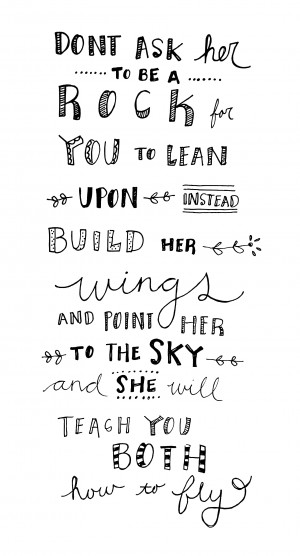 DONT ASK her
TO BE A
ROCK for
YOU TO LEAN
UPON INSTEAD
BUILD HER
wings
AND POINT HER
TO THE SKY
and SHE will
TEACH YOU
BOTH
how to fly